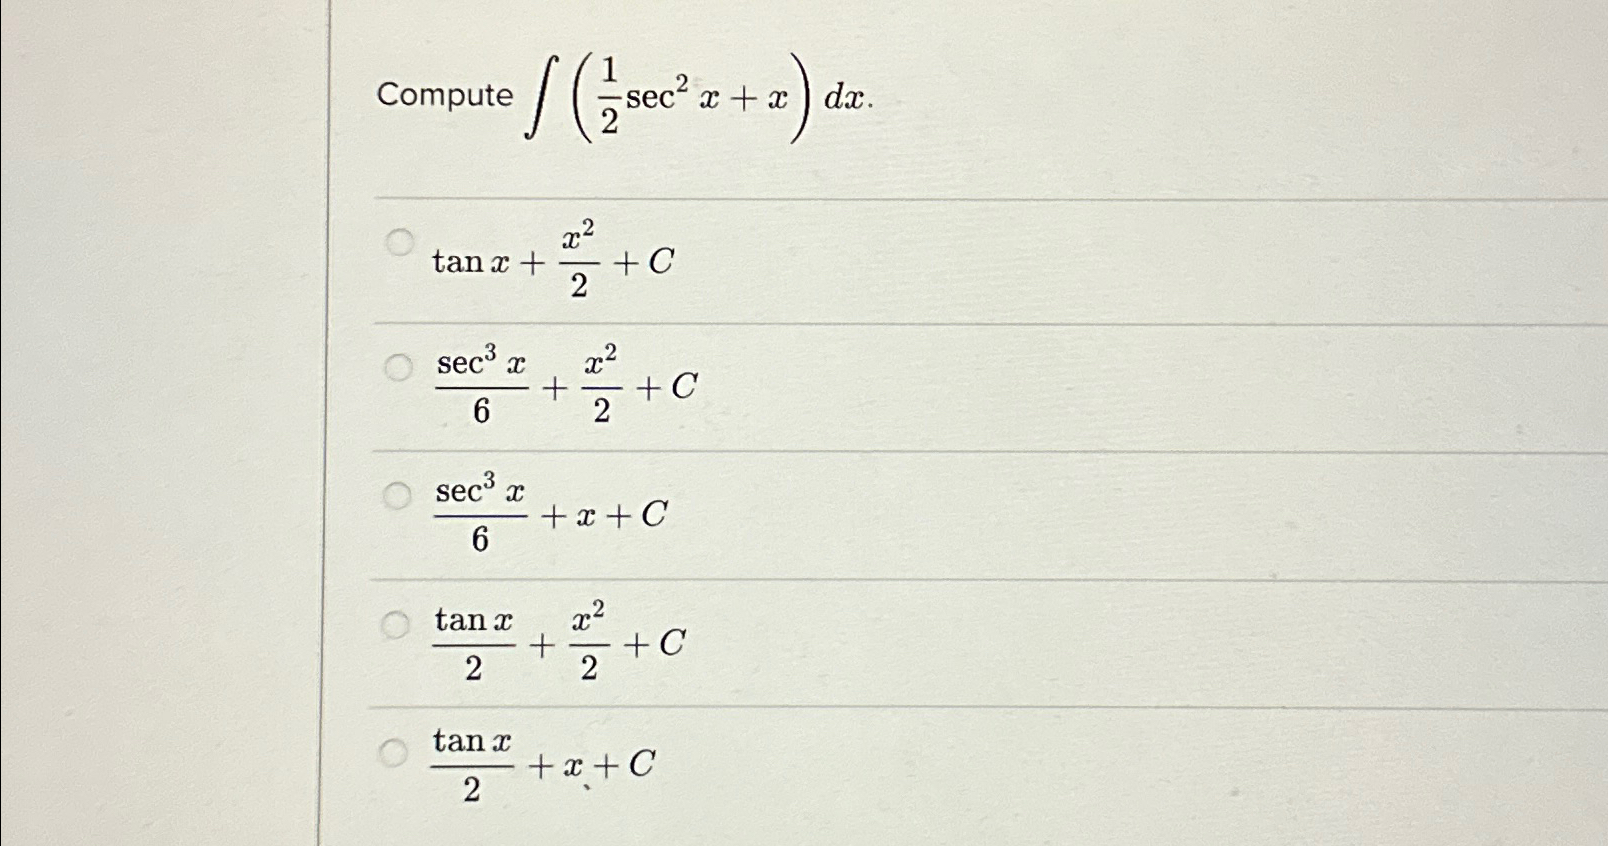 Compute ∫ (1/2 sec² x + x) dx.
tan x + x²/2 + C
sec³ x/6 + x²/2 + C
sec³ x/6 + x + C
tan x/2 + x²/2 + C
tan x/2 + x + C